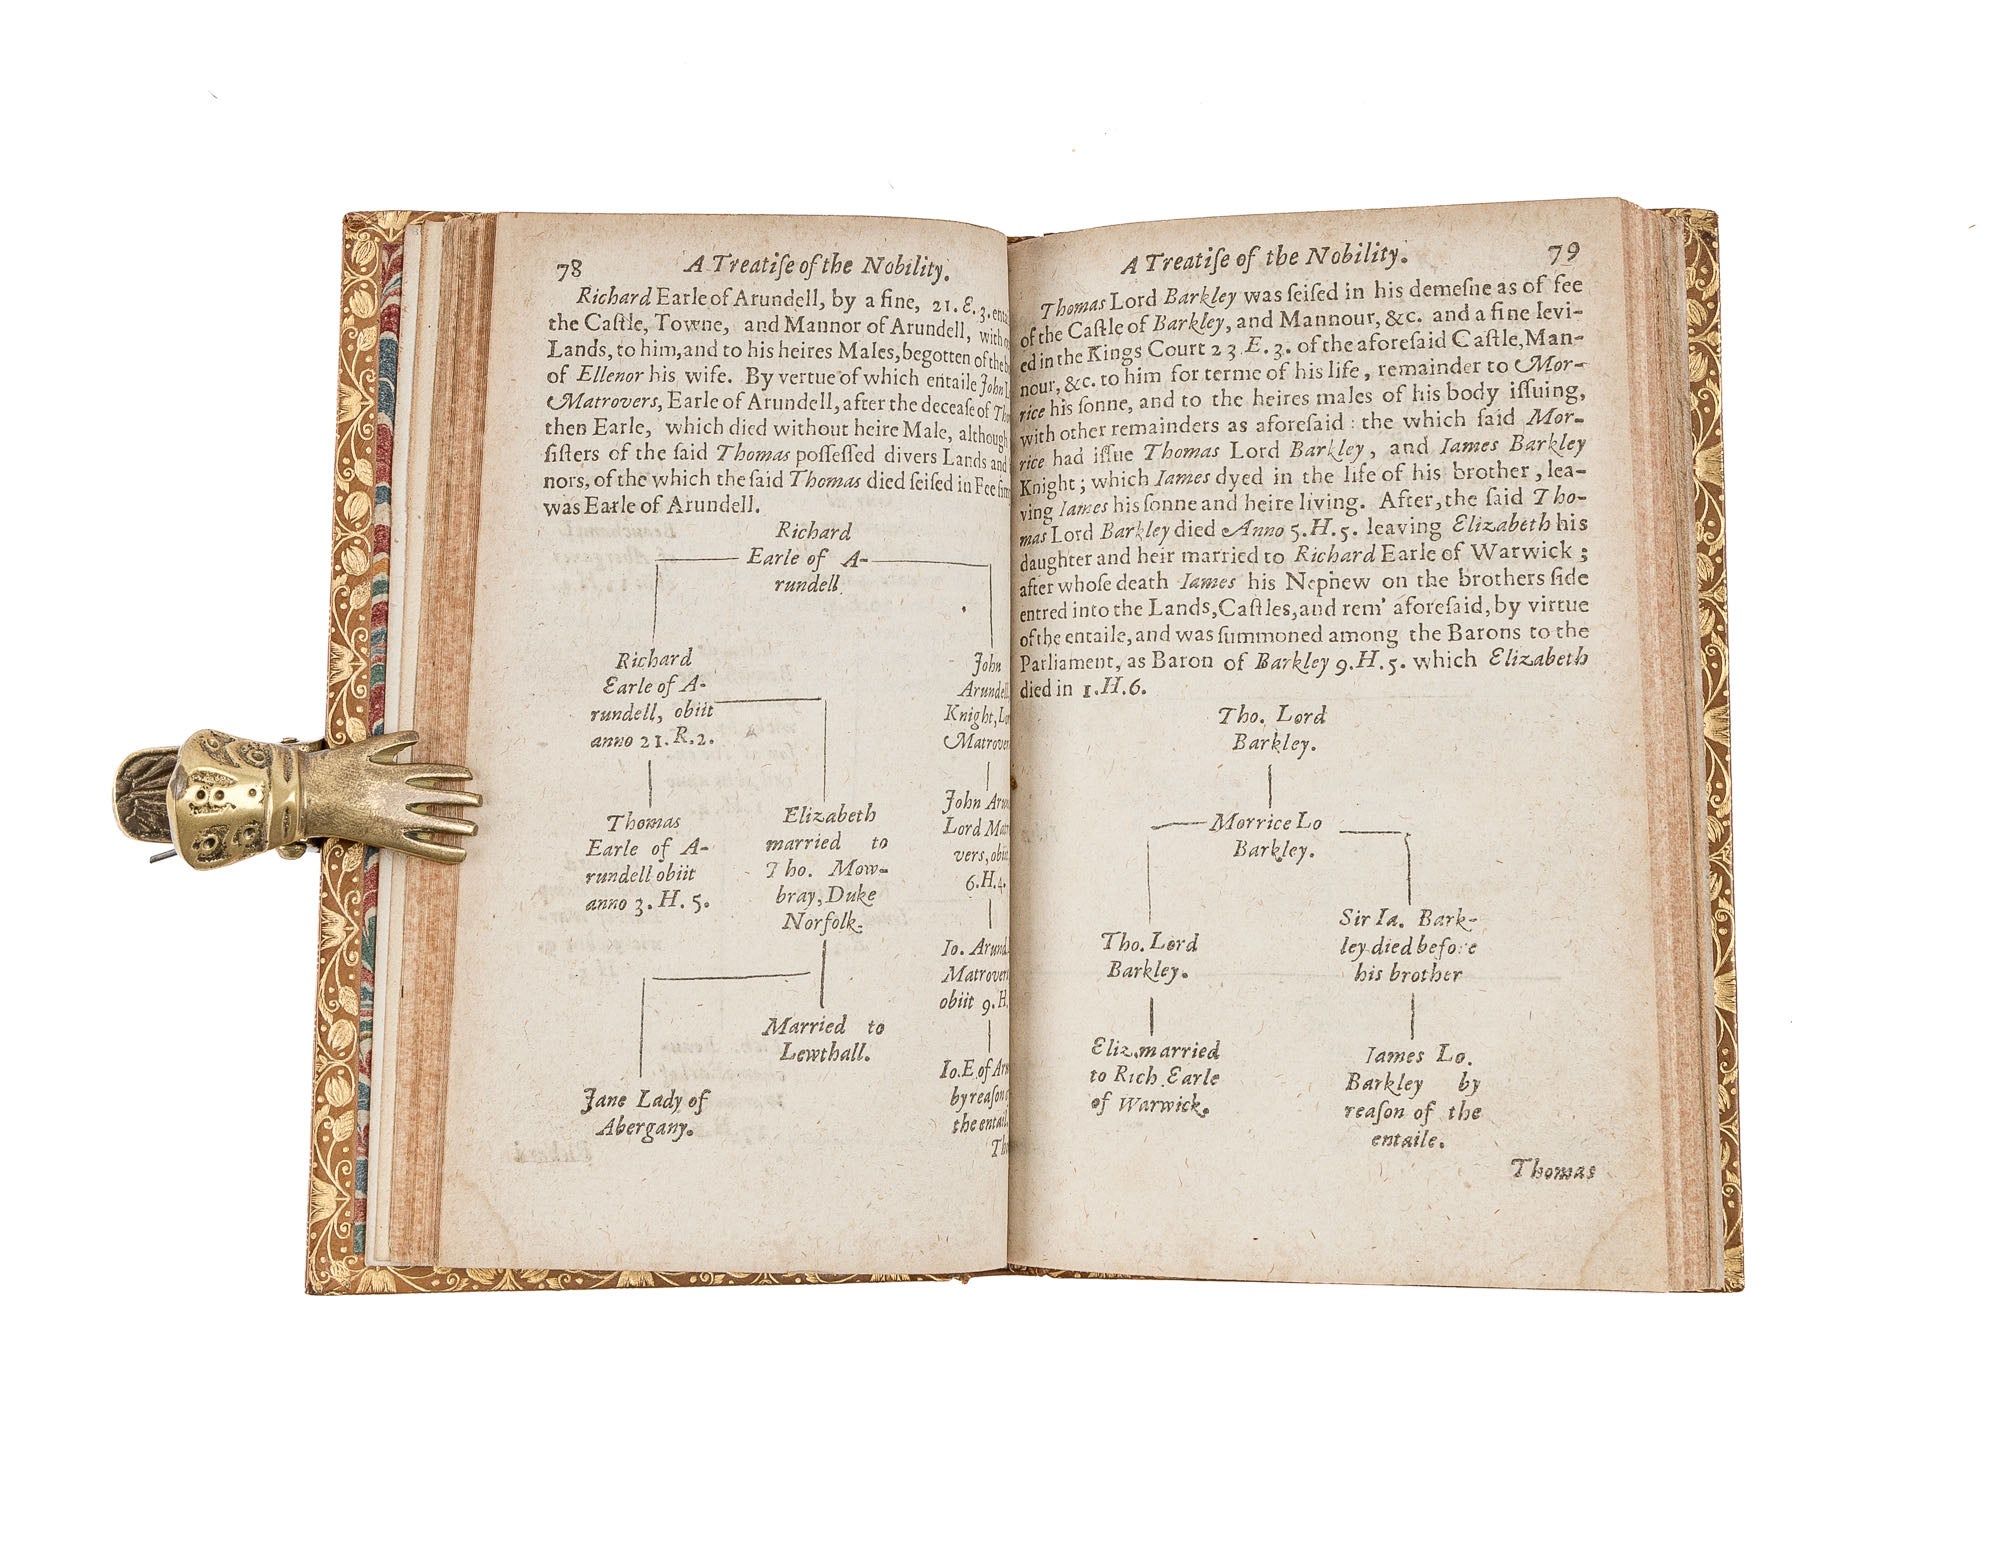 78 A Treatiſe of the Nobility.
Richard Earle of Arundell, by a fine, 21. E. 3.
the Caſtle, Towne, and Mannor of Arundell, with
Lands, to him, and to his heires Males, begotten of the
of Ellenor his wife. By vertue of which entaile John
Matrovers, Earle of Arundell, after the deceaſe of
then Earle, which died without heire Male, although
ſiſters of the ſaid Thomas poſſeſſed divers Lands and
nors, of the which the ſaid Thomas died ſeiſed in Fee
was Earle of Arundell.
Richard
Earle of A-
rundell.
Richard
Earle of A-
rundell, obiit
anno 21. R. 2.
John
Knight,
Thomas
Earle of A-
rundell obiit
anno 3. H. 5.
Elizabeth
married to
Tho. Mow-
bray, Duke
Norfolk.
John
Lord
vers,
6. H. 4.
Jo.
obiit 9. H.
Married to
Lewthall.
Jane Lady of
Abergany.
Io. E. of
by reaſon
the entail.
A Treatiſe of the Nobility. 79
Thomas Lord Barkley was ſeiſed in his demeſne as of fee
of the Caſtle of Barkley, and Mannour, &c. and a fine levi-
ed in the Kings Court 23 E. 3. of the aforeſaid Caſtle, Man-
nour, &c. to him for terme of his life, remainder to Mor-
rice his ſonne, and to the heires males of his body iſſuing,
with other remainders as aforeſaid: the which ſaid Mor-
rice had iſſue Thomas Lord Barkley, and Iames Barkley
Knight; which Iames dyed in the life of his brother, lea-
ving Iames his ſonne and heire living. After, the ſaid Tho-
mas Lord Barkley died Anno 5. H. 5. leaving Elizabeth his
daughter and heir married to Richard Earle of Warwick;
after whoſe death Iames his Nephew on the brothers ſide
entred into the Lands, Caſtles, and rem' aforeſaid, by virtue
of the entaile, and was ſummoned among the Barons to the
Parliament, as Baron of Barkley 9. H. 5. which Elizabeth
died in 1. H. 6.
Tho. Lord
Barkley.
Morrice Lo
Barkley.
Tho. Lord
Barkley.
Sir Ia. Bark-
ley died before
his brother
Eliz. married
to Rich. Earle
of Warwick.
Iames Lo.
Barkley by
reaſon of the
entaile.
Thomas